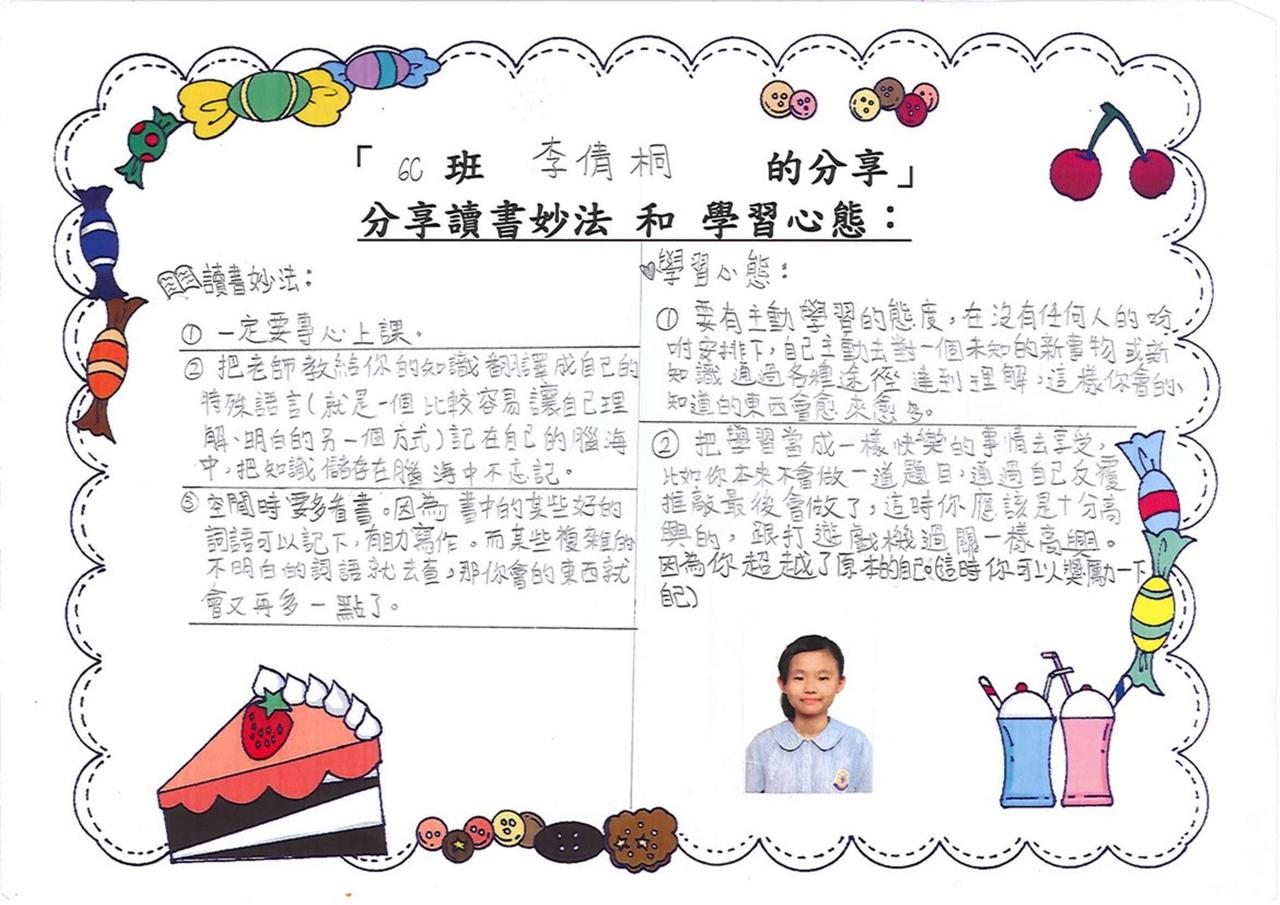 「 6C 班 李倩桐 的分享」
分享讀書妙法 和 學習心態：
讀書妙法：
① 一定要專心上課。
② 把老師教給你的知識翻譯成自己的
特殊語言(就是一個比較容易讓自己理
解、明白的另一個方式)記在自己的腦海
中，把知識儲存在腦海中不忘記。
③ 空閒時要多看書。因為書中的某些好的
詞語可以記下，有助寫作。而某些複雜的
不明白的詞語就去查，那你會的東西就
會又再多一點了。
學習心態：
① 要有主動學習的態度，在沒有任何人的吩
咐安排下，自己主動去對一個未知的新事物或新
知識通過各種途徑達到理解，這樣你會的、
知道的東西會愈來愈多。
② 把學習當成一樣快樂的事情去享受，
比如你本來不會做一道題目，通過自己反覆
推敲最後會做了，這時你應該是十分高
興的，跟打遊戲機過關一樣高興。
因為你超越了原本的自己。(這時你可以獎勵一下
自己)